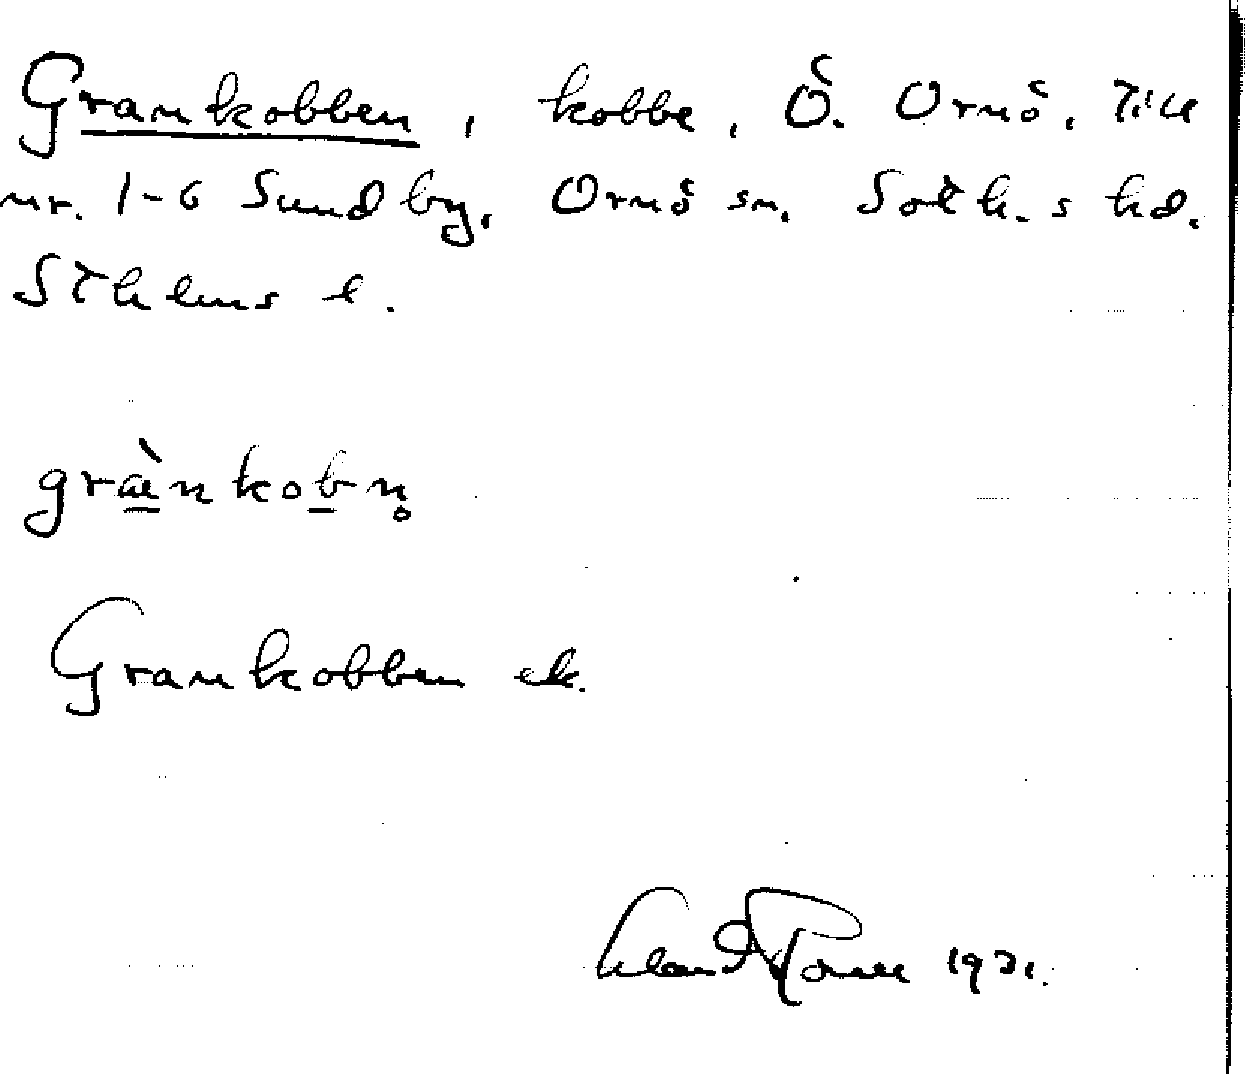 Grankobben, kobbe, Ö. Ornö, Till
nr. 1-6 Sundby, Ornö sn. Soth. s hd.
Sthlms l.
græ̀nkobn̥
Grankobben ek.
1931.